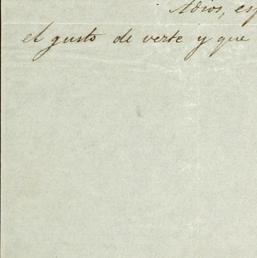 Adios, esp
el gusto de verte y que